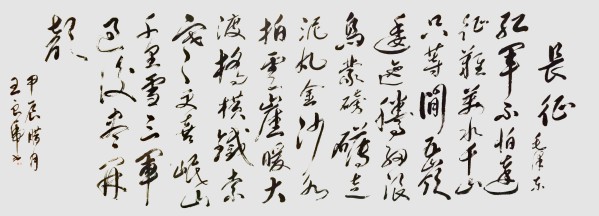 長征
毛泽东
红軍不怕遠
征難萬水千山
只等閒五嶺
逶迤騰細浪
烏蒙磅礴走
泥丸金沙水
拍雲崖暖大
渡橋横鐵索
寒更喜岷山
千里雪三軍
過後盡開
顏
甲辰 月
王